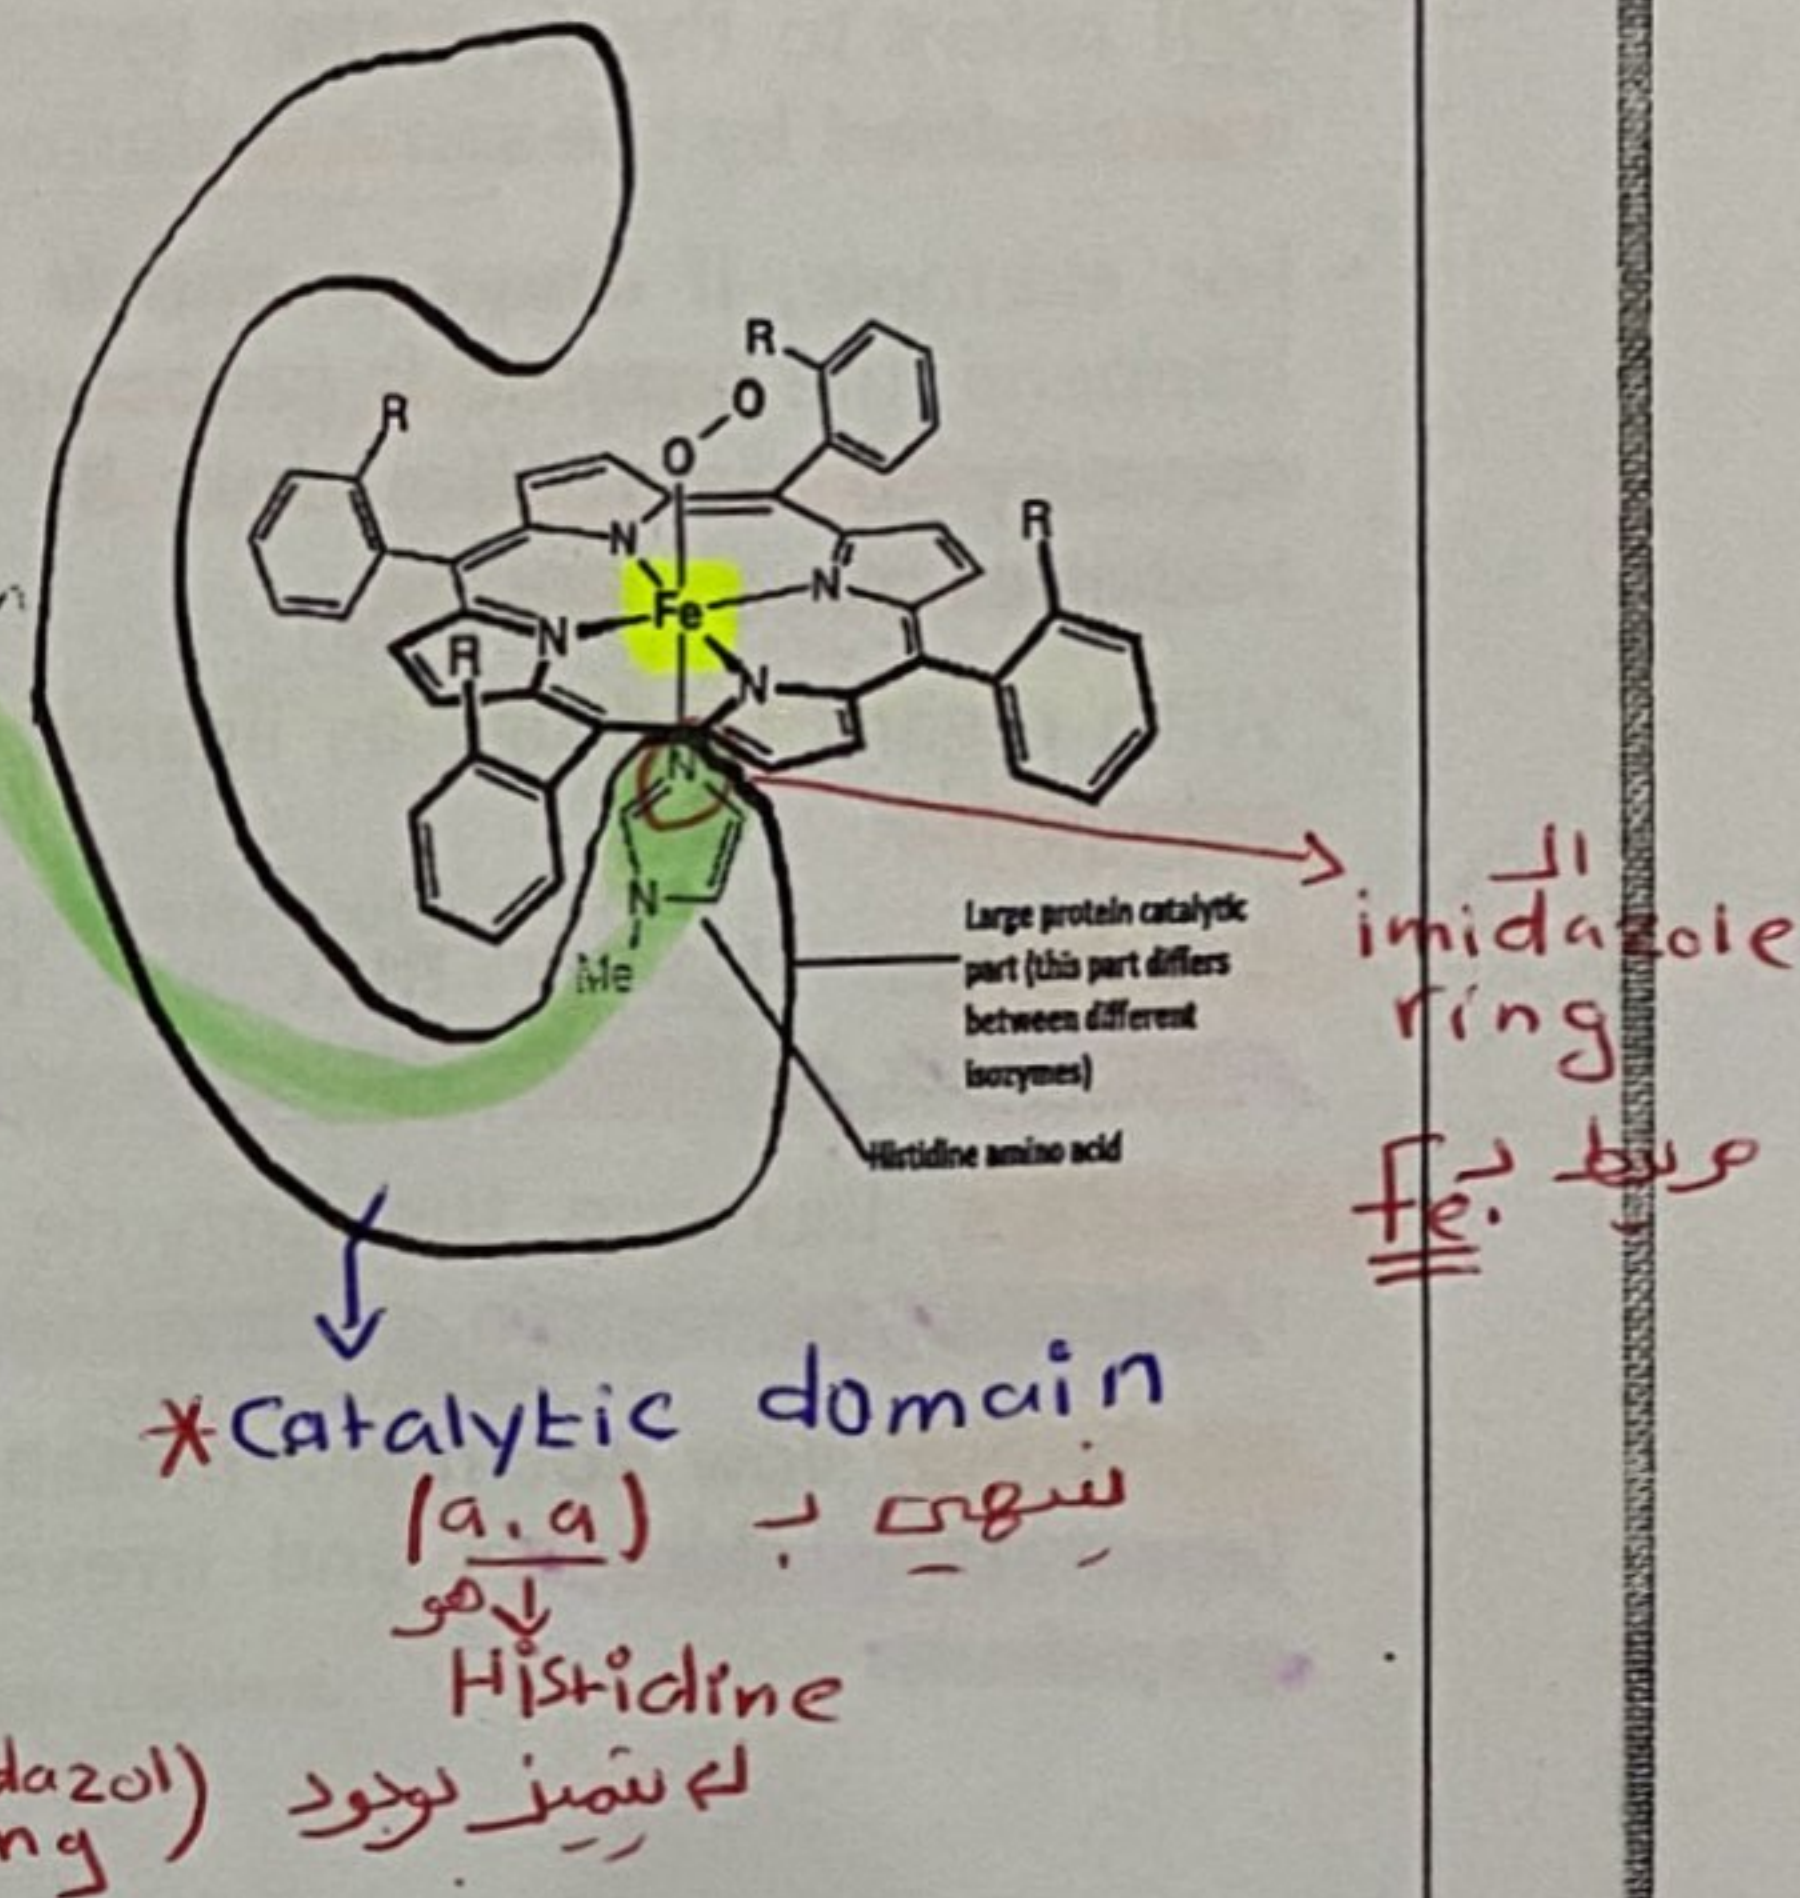 R
R
O
O
R
N
N
Fe
N
R
N
N
N
Me
Large protein catalytic
part (this part differs
between different
isozymes)
Histidine amino acid
الـ
imidazole
ring
يربط بـ
Fe
*Catalytic domain
ينتهي بـ (a.a)
هو
Histidine
يتميز بوجود (dazol
ng